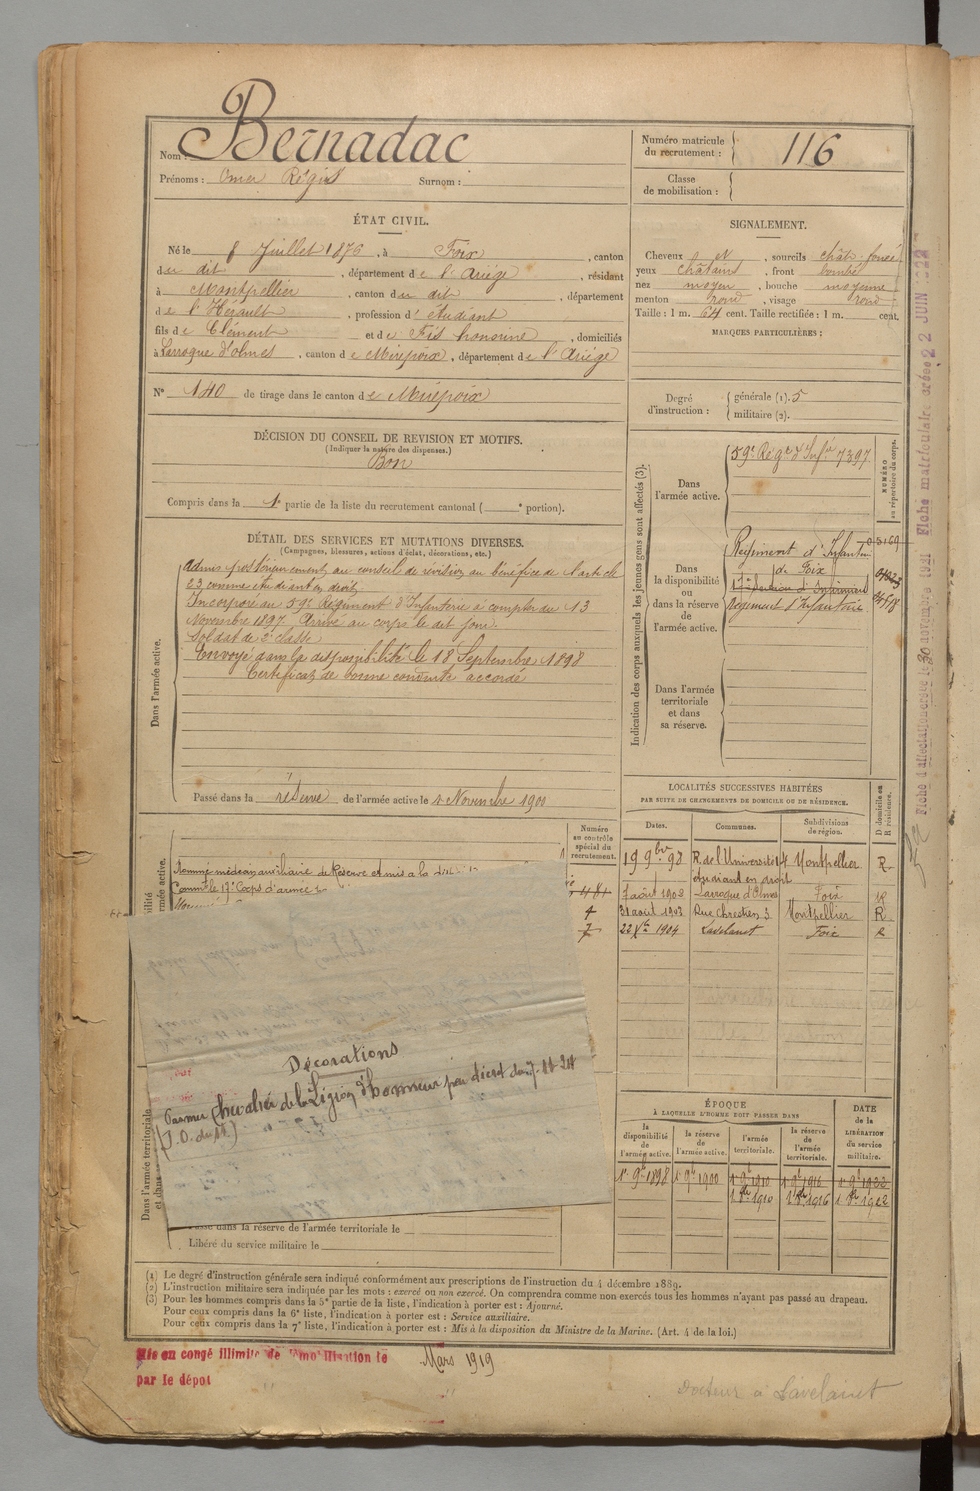 Nom : Bernadac
Prénoms : Omer Régis Surnom :
Numéro matricule
du recrutement : 116
Classe
de mobilisation :
ÉTAT CIVIL.
Né le 8 Juillet 1876, à Foix, canton
du dit, département de l'Ariège, résidant
à Montpellier, canton du dit, département
de l'Hérault, profession d'étudiant
fils de Clément et de Fis honorine, domiciliés
à Larroque d'olmes, canton de Mirepoix, département de l'Ariège
N° 140 de tirage dans le canton de Mirepoix
SIGNALEMENT.
Cheveux et, sourcils chât. foncé
yeux châtains, front bombé
nez moyen, bouche moyenne
menton rond, visage rond
Taille : 1 m. 64 cent. Taille rectifiée : 1 m. cent.
MARQUES PARTICULIÈRES :
Degré
d'instruction :
générale (1). 5
militaire (2).
DÉCISION DU CONSEIL DE REVISION ET MOTIFS.
(Indiquer la nature des dispenses.)
Bon
Compris dans la 1e partie de la liste du recrutement cantonal ( e portion).
DÉTAIL DES SERVICES ET MUTATIONS DIVERSES.
(Campagnes, blessures, actions d'éclat, décorations, etc.)
Dans l'armée active.
Admis postérieurement au conseil de révision au bénéfice de l'article
23 comme étudiant en droit
Incorporé au 59e Régiment d'Infanterie à compter du 13
Novembre 1897. Arrivé au corps le dit jour.
Soldat de 2e classe
Envoyé dans la disponibilité le 18 Septembre 1898
Certificat de bonne conduite accordé
Passé dans la réserve de l'armée active le 1 Novembre 1900
Indication des corps auxquels les jeunes gens sont affectés (3).
NUMÉRO
au répertoire du corps.
Dans
l'armée active.
59e Régt d'Infie 7397
Dans
la disponibilité
ou
dans la réserve
de
l'armée active.
Régiment d'Infanterie
de Foix
17e Section d'Infirmiers
régiment d'Infanterie
Dans l'armée
territoriale
et dans
sa réserve.
LOCALITÉS SUCCESSIVES HABITÉES
PAR SUITE DE CHANGEMENTS DE DOMICILE OU DE RÉSIDENCE.
Dates. Communes. Subdivisions de région. D domicile ou R résidence.
19 9bre 98 R. de l'Université 4 Montpellier R
étudiant en droit
7 août 1903 Larroque d'Olmes Foix R
31 août 1903 Rue Chrestien 3 Montpellier R
22 Xbre 1904 Lavelanet Foix R
Numéro
au contrôle
spécial du
recrutement.
Nommé médecin auxiliaire de Réserve et mis à la
Commt le 17e Corps d'armée
Décorations
Nommé Chevalier de la Légion d'honneur par décret du
(J.O. du
Dans l'armée territoriale
Passé dans la réserve de l'armée territoriale le
Libéré du service militaire le
ÉPOQUE
À LAQUELLE L'HOMME DOIT PASSER DANS
la disponibilité de l'armée active. la réserve de l'armée active. l'armée territoriale. la réserve de l'armée territoriale.
DATE de la LIBÉRATION du service militaire.
1r 9bre 1898 1r 9bre 1900 1r 9bre 1910 1r 9bre 1916 1r 9bre 1922
1910 1916 1922
(1) Le degré d'instruction générale sera indiqué conformément aux prescriptions de l'instruction du 4 décembre 1889.
(2) L'instruction militaire sera indiquée par les mots : exercé ou non exercé. On comprendra comme non exercés tous les hommes n'ayant pas passé au drapeau.
(3) Pour les hommes compris dans la 5e partie de la liste, l'indication à porter est : Ajourné.
Pour ceux compris dans la 6e liste, l'indication à porter est : Service auxiliaire.
Pour ceux compris dans la 7e liste, l'indication à porter est : Mis à la disposition du Ministre de la Marine. (Art. 4 de la loi.)
Mis en congé illimité de démobilisation le Mars 1919
par le dépôt
Docteur à Lavelanet